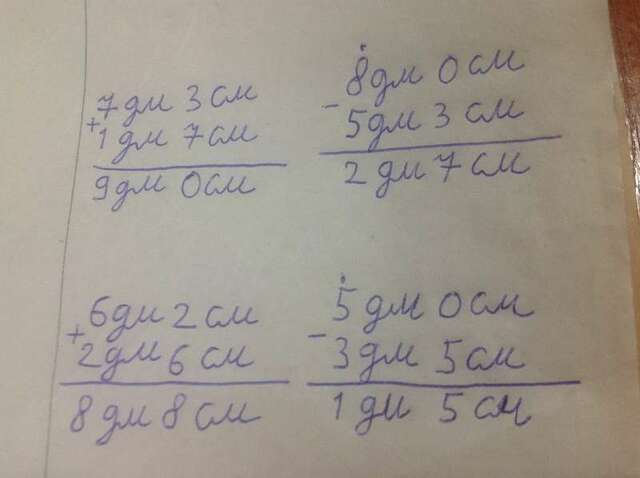 7 дм 3 см
+
1 дм 7 см
9 дм 0 см
8 дм 0 см
-
5 дм 3 см
2 дм 7 см
6 дм 2 см
+
2 дм 6 см
8 дм 8 см
5 дм 0 см
-
3 дм 5 см
1 дм 5 см